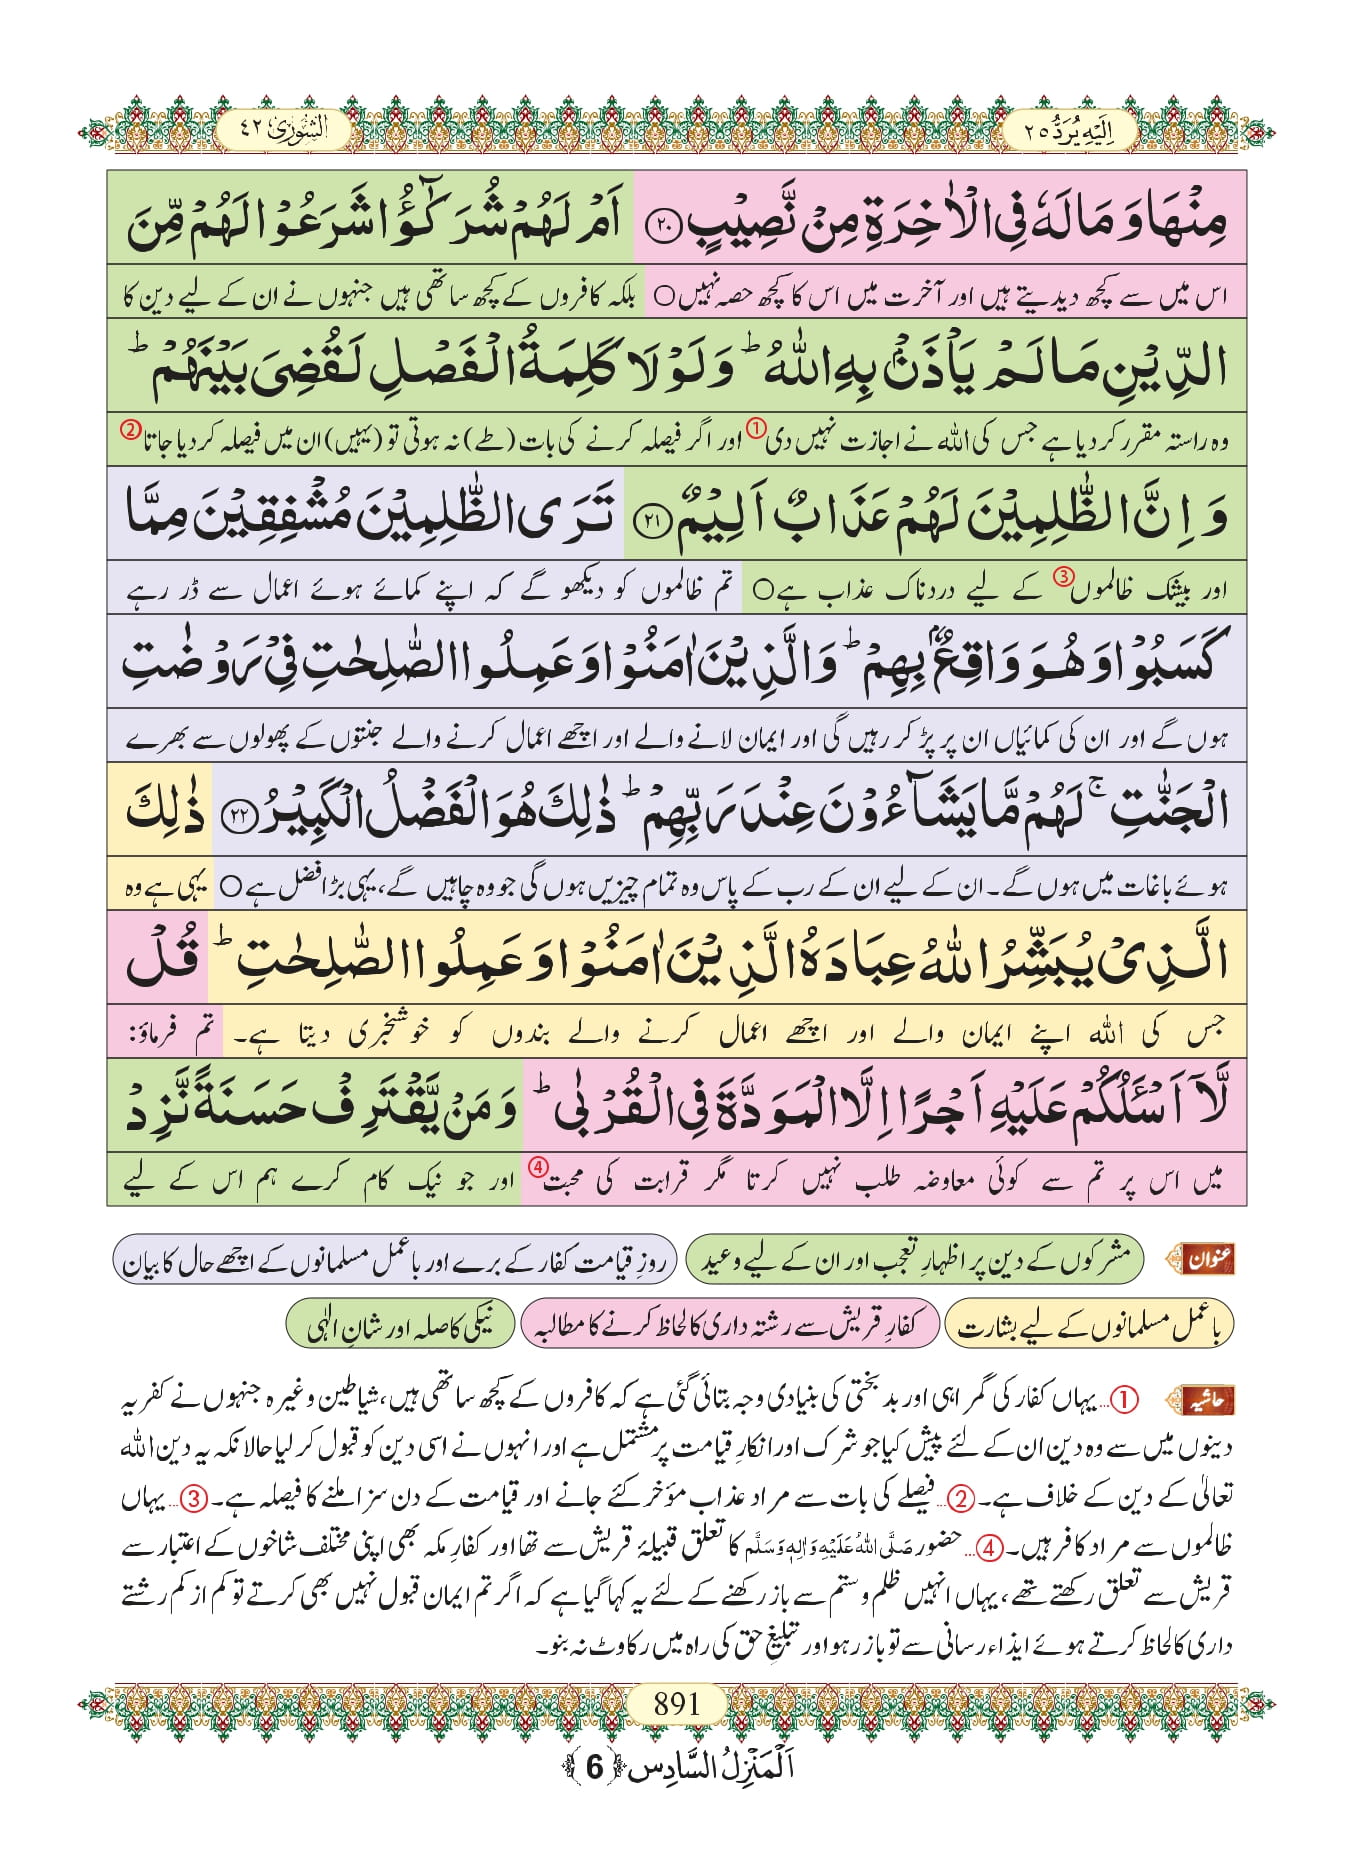 اِلَیْهِ یُرَدُّ ۲۵
الشُّوْرٰی ۴۲
مِنْهَا وَ مَا لَهٗ فِی الْاٰخِرَةِ مِنْ نَّصِیْبٍ ﴿۲۰﴾ اَمْ لَهُمْ شُرَكٰٓؤُا شَرَعُوْا لَهُمْ مِّنَ
اس میں سے کچھ دیدیتے ہیں اور آخرت میں اس کا کچھ حصہ نہیں○ بلکہ کافروں کے کچھ ساتھی ہیں جنہوں نے ان کے لیے دین کا
الدِّیْنِ مَا لَمْ یَاْذَنْۢ بِهِ اللّٰهُ ؕ وَ لَوْ لَا كَلِمَةُ الْفَصْلِ لَقُضِیَ بَیْنَهُمْ ؕ
وہ راستہ مقرر کردیا ہے جس کی اللہ نے اجازت نہیں دی① اور اگر فیصلہ کرنے کی بات (طے) نہ ہوتی تو (یہیں) ان میں فیصلہ کردیا جاتا②
وَ اِنَّ الظّٰلِمِیْنَ لَهُمْ عَذَابٌ اَلِیْمٌ ﴿۲۱﴾ تَرَی الظّٰلِمِیْنَ مُشْفِقِیْنَ مِمَّا
اور بیشک ظالموں③ کے لیے دردناک عذاب ہے○ تم ظالموں کو دیکھو گے کہ اپنے کمائے ہوئے اعمال سے ڈر رہے
كَسَبُوْا وَ هُوَ وَاقِعٌۢ بِهِمْ ؕ وَ الَّذِیْنَ اٰمَنُوْا وَ عَمِلُوا الصّٰلِحٰتِ فِیْ رَوْضٰتِ
ہوں گے اور ان کی کمائیاں ان پر پڑ کر رہیں گی اور ایمان لانے والے اور اچھے اعمال کرنے والے جنتوں کے پھولوں سے بھرے
الْجَنّٰتِ ۚ لَهُمْ مَّا یَشَآءُوْنَ عِنْدَ رَبِّهِمْ ؕ ذٰلِكَ هُوَ الْفَضْلُ الْكَبِیْرُ ﴿۲۲﴾ ذٰلِكَ
ہوئے باغات میں ہوں گے۔ ان کے لیے ان کے رب کے پاس وہ تمام چیزیں ہوں گی جو وہ چاہیں گے، یہی بڑا فضل ہے○ یہی ہے وہ
الَّذِیْ یُبَشِّرُ اللّٰهُ عِبَادَهُ الَّذِیْنَ اٰمَنُوْا وَ عَمِلُوا الصّٰلِحٰتِ ؕ قُلْ
جس کی اللہ اپنے ایمان والے اور اچھے اعمال کرنے والے بندوں کو خوشخبری دیتا ہے۔ تم فرماؤ:
لَّاۤ اَسْـَٔلُكُمْ عَلَیْهِ اَجْرًا اِلَّا الْمَوَدَّةَ فِی الْقُرْبٰى ؕ وَ مَنْ یَّقْتَرِفْ حَسَنَةً نَّزِدْ
میں اس پر تم سے کوئی معاوضہ طلب نہیں کرتا مگر قرابت کی محبت④ اور جو نیک کام کرے ہم اس کے لیے
عنوان مشرکوں کے دین پر اظہارِ تعجب اور ان کے لیے وعید روزِ قیامت کفار کے برے اور باعمل مسلمانوں کے اچھے حال کا بیان
باعمل مسلمانوں کے لیے بشارت کفارِ قریش سے رشتہ داری کا لحاظ کرنے کا مطالبہ نیکی کا صلہ اور شانِ الٰہی
حاشیہ ①... یہاں کفار کی گمراہی اور بدبختی کی بنیادی وجہ بتائی گئی ہے کہ کافروں کے کچھ ساتھی ہیں، شیاطین وغیرہ جنہوں نے کفریہ
دینوں میں سے وہ دین ان کے لئے پیش کیا جو شرک اور انکارِ قیامت پر مشتمل ہے اور انہوں نے اسی دین کو قبول کر لیا حالانکہ یہ دین اللہ
تعالیٰ کے دین کے خلاف ہے۔ ②... فیصلے کی بات سے مراد عذاب مؤخر کئے جانے اور قیامت کے دن سزا ملنے کا فیصلہ ہے۔ ③... یہاں
ظالموں سے مراد کافر ہیں۔ ④... حضور صَلَّی اللهُ عَلَیْهِ وَاٰلِهٖ وَسَلَّم کا تعلق قبیلۂ قریش سے تھا اور کفارِ مکہ بھی اپنی مختلف شاخوں کے اعتبار سے
قریش سے تعلق رکھتے تھے، یہاں انہیں ظلم و ستم سے باز رکھنے کے لئے یہ کہا گیا ہے کہ اگر تم ایمان قبول نہیں بھی کرتے تو کم از کم رشتے
داری کا لحاظ کرتے ہوئے ایذاء رسانی سے تو باز رہو اور تبلیغِ حق کی راہ میں رکاوٹ نہ بنو۔
891
اَلْمَنْزِلُ السَّادِس ﴿6﴾